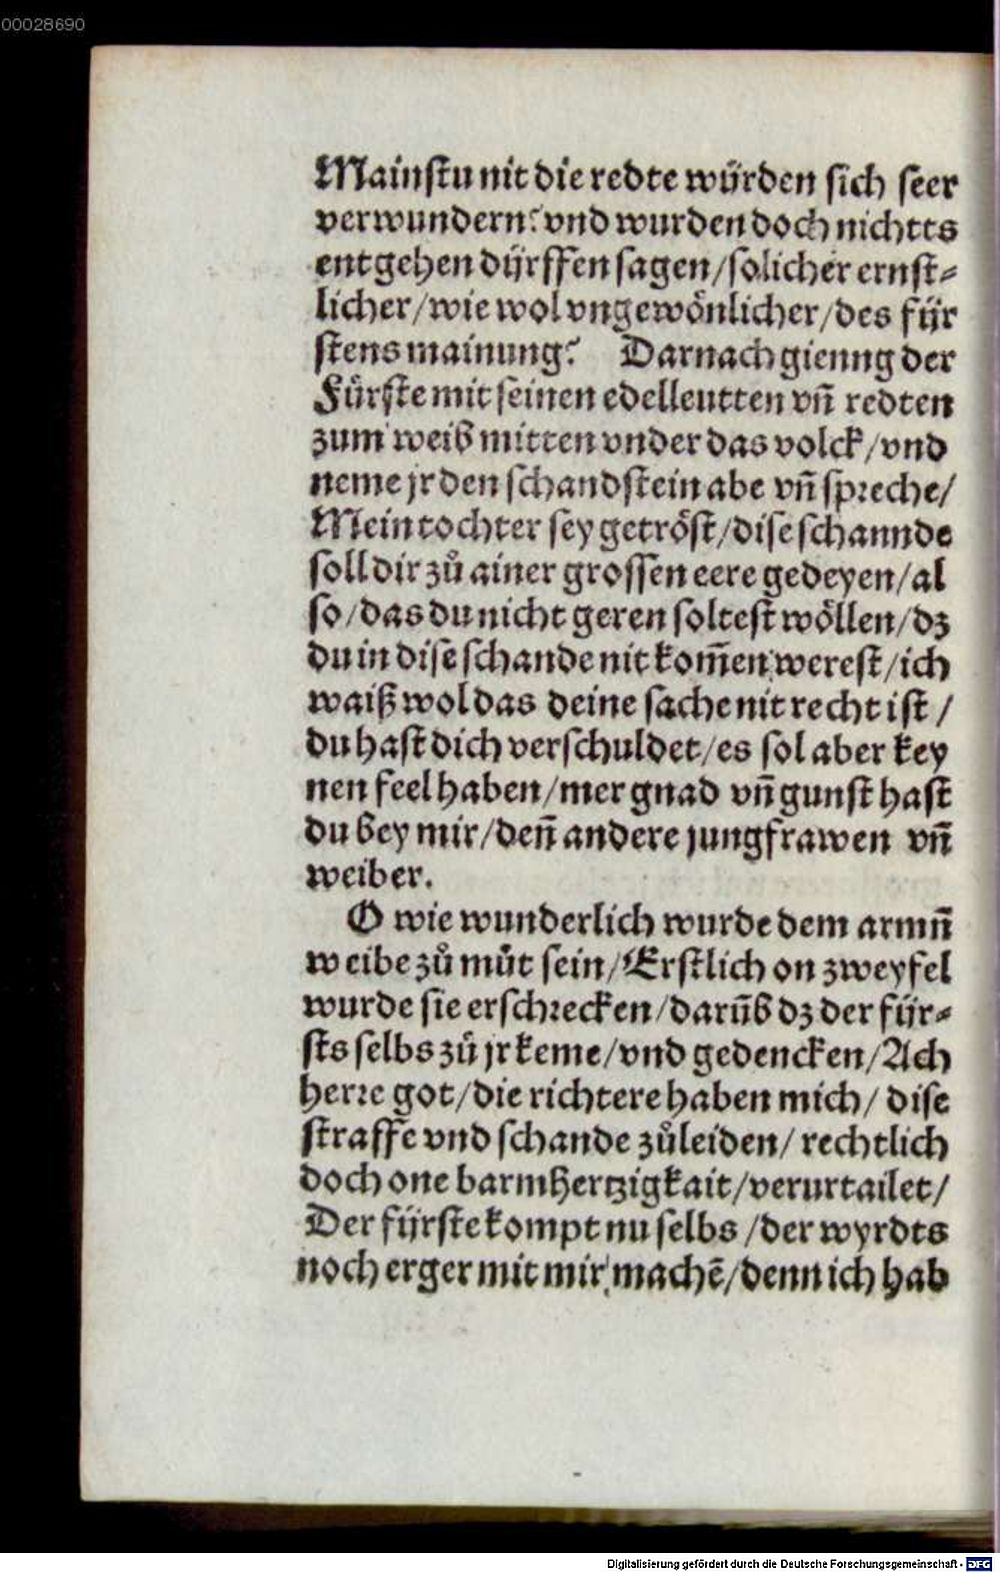 00028690
Mainstu nit die redte würden sich seer
verwundern? vnd wurden doch nichtts
entgehen dürffen sagen/solicher ernst⸗
licher/wie wol vngewönlicher/des für
stens mainung? Darnach gienng der
Fürste mit seinen edelleutten vñ redten
zum weib mitten vnder das volck/vnd
neme jr den schandstein abe vñ spreche/
Mein tochter sey getröst/dise schannde
soll dir zů ainer grossen eere gedeyen/al
so/das du nicht geren soltest wöllen/dz
du in dise schande nit kom̃en werest/ich
waiß wol das deine sache nit recht ist/
du hast dich verschuldet/es sol aber key
nen feel haben/mer gnad vñ gunst hast
du bey mir/deñ andere jungfrawen vñ
weiber.
O wie wunderlich wurde dem armñ
weibe zů můt sein/Erstlich on zweyfel
wurde sie erschrecken/darũb dz der für⸗
sts selbs zů jr keme/vnd gedencken/Ach
herre got/die richtere haben mich/ dise
straffe vnd schande zůleiden/ rechtlich
doch one barmhertzigkait/verurtailet/
Der fürste kompt nu selbs/der wyrdts
noch erger mit mir machẽ/denn ich hab
Digitalisierung gefördert durch die Deutsche Forschungsgemeinschaft - DFG